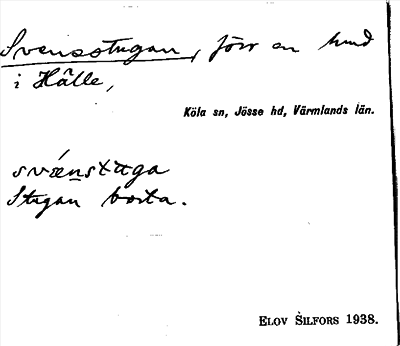 Svensstugan, förr en
i Hålle,
Köla sn, Jösse hd, Värmlands län.
svǽnstuga
Stugan borta.
ELOV SILFORS 1938.